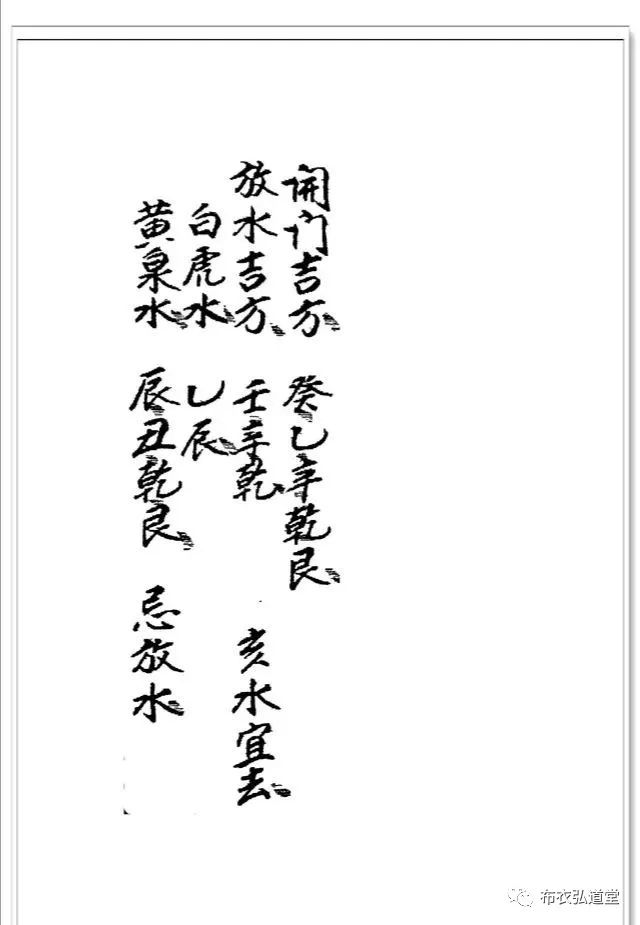 開门吉方 癸乙辛乾艮
放水吉方 壬辛乾 亥水宜去
白虎水 乙辰
黄泉水 辰丑乾艮 忌放水
布衣弘道堂